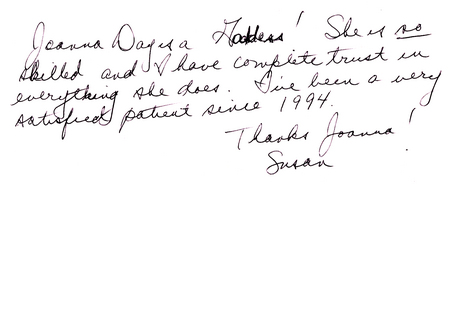 Joanna Day is a Goddess! She is so
skilled and I have complete trust in
everything she does. I've been a very
satisfied patient since 1994.
Thanks Joanna!
Susan